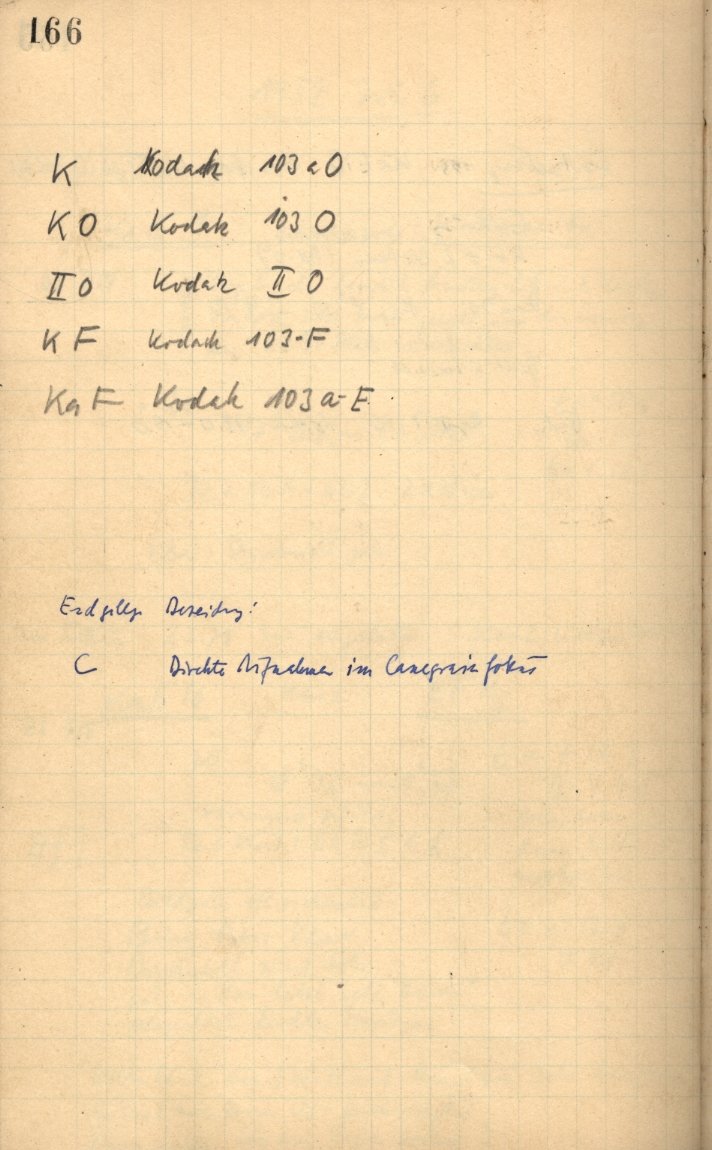 166
K Kodak 103 a O
KO Kodak 103 O
II O Kodak II O
K F Kodak 103-F
Ka F Kodak 103 a-E
C Direkte Aufnahmen im Cassegrain fokus